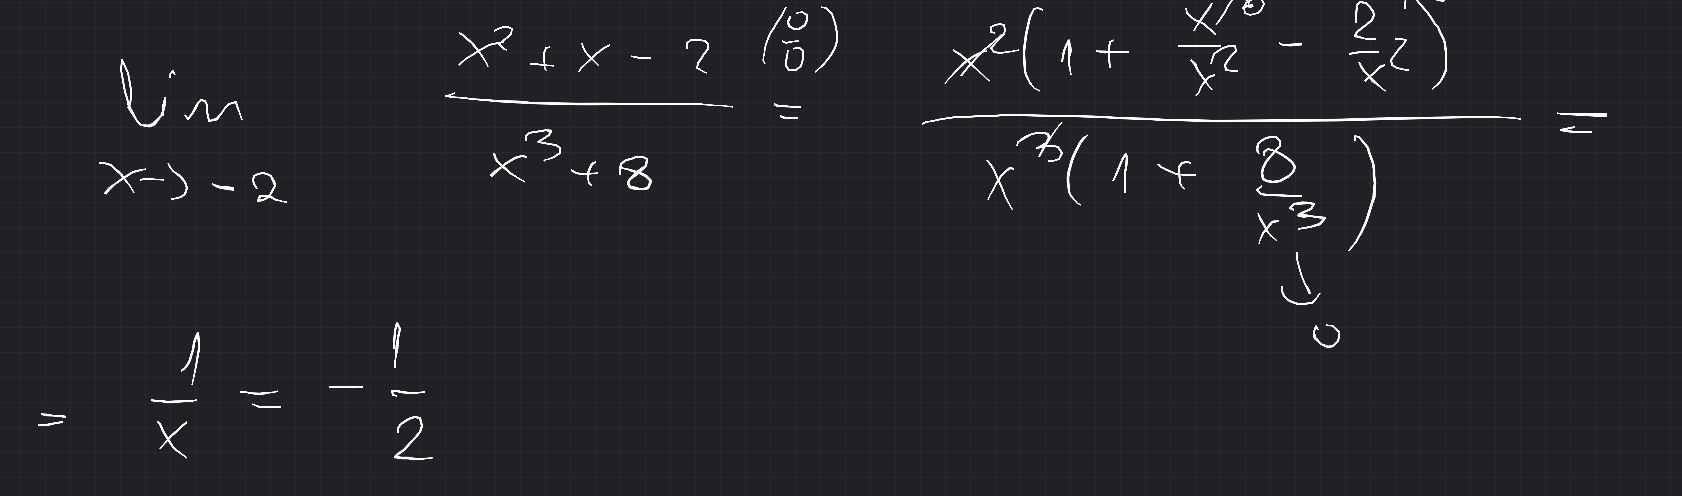 lim x→-2 (x² + x - 2)/(x³ + 8) (0/0) = x²(1 + x/x² - 2/x²)/x³(1 + 8/x³) =
↓
0
= 1/x = -1/2